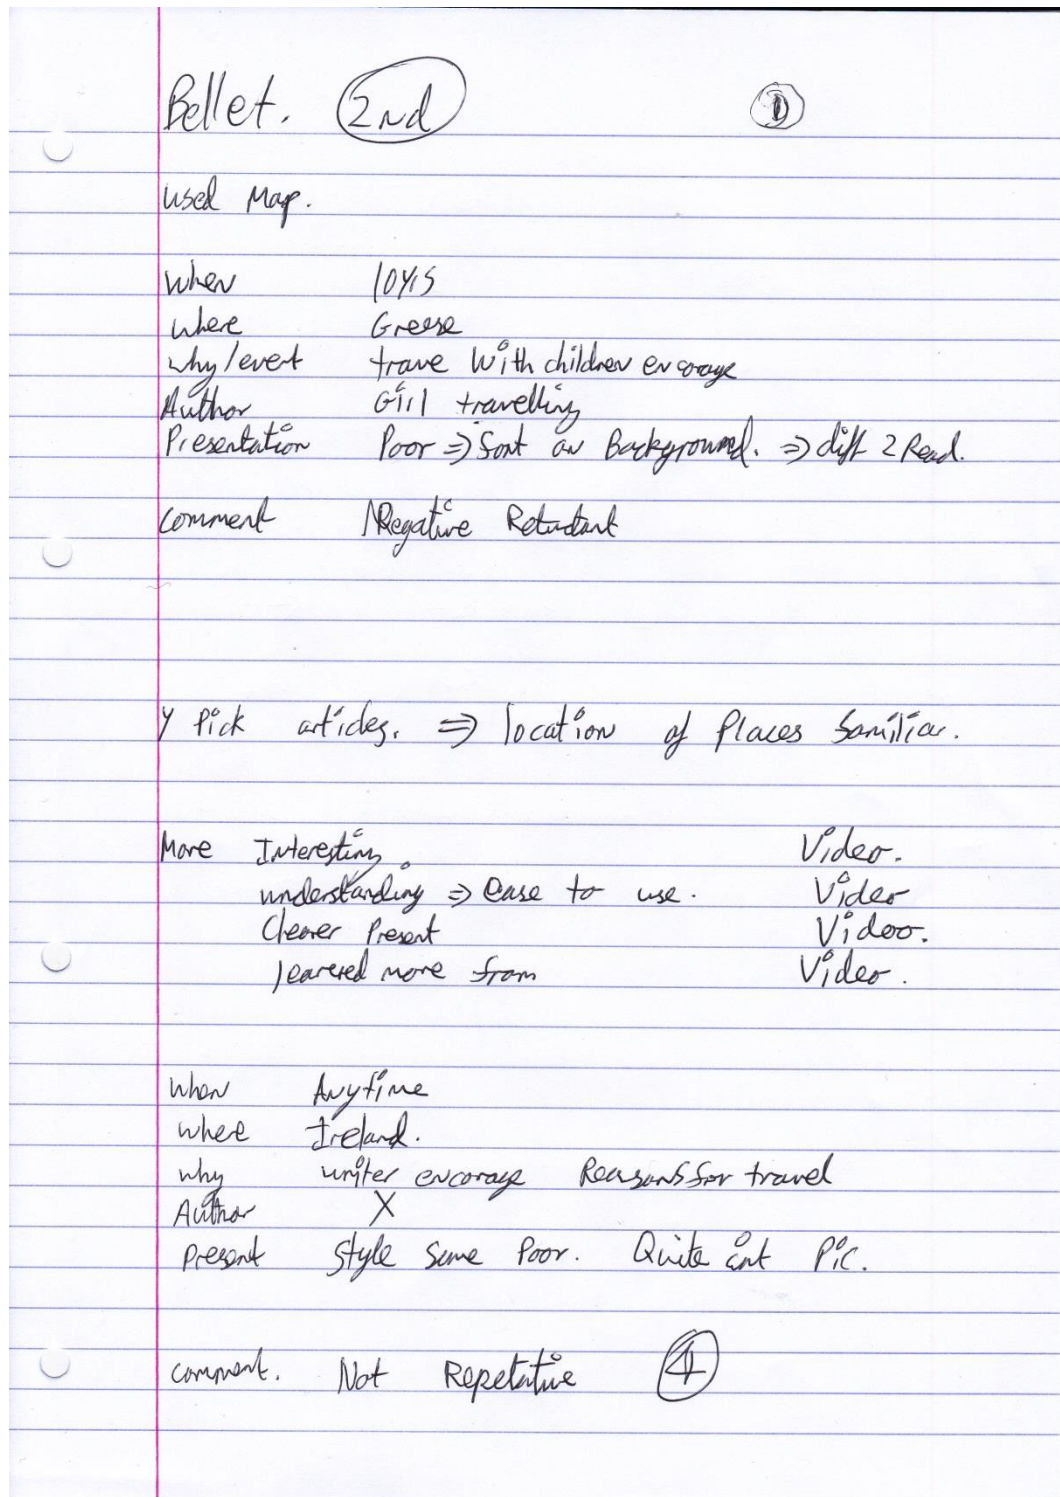 Bellet. 2nd 1
Used Map.
When 10yrs
where Greese
why/evert trave With children encorage
Author Girl travelling
Presentation Poor ⇒ Font on Background. ⇒ diff 2 Read.
comment Negative
Y Pick articles. ⇒ location of Places familiar.
More Interesting Video.
understanding ⇒ ease to use. Video
Clearer Present Video.
learered more from Video.
When Anytime
where Ireland.
why writer encorage Reasons for travel
Author X
present Style Same Poor. Quite int Pic.
comment. Not Repetative 4